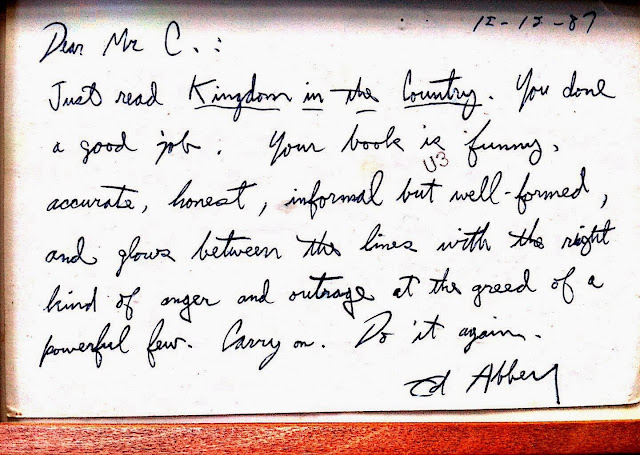 12-12-87
Dear Mr C.:
Just read Kingdom in the Country. You done
a good job. Your book is funny,
U3
accurate, honest, informal but well-formed,
and glows between the lines with the right
kind of anger and outrage at the greed of a
powerful few. Carry on. Do it again.
Ed Abbey